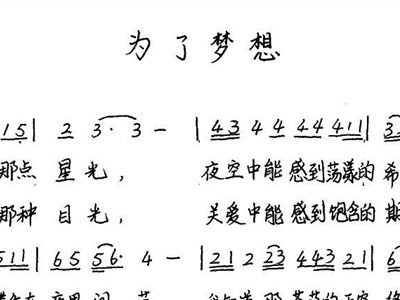 为了梦想
15 | 2 3· 3 — | 43 4 4 44 411 |
那点 星光， 夜空中能感到荡漾的 希
那种 目光， 关爱中能感到饱含的 期
511 | 65 56· 4 — | 21 2 23 443 21 |